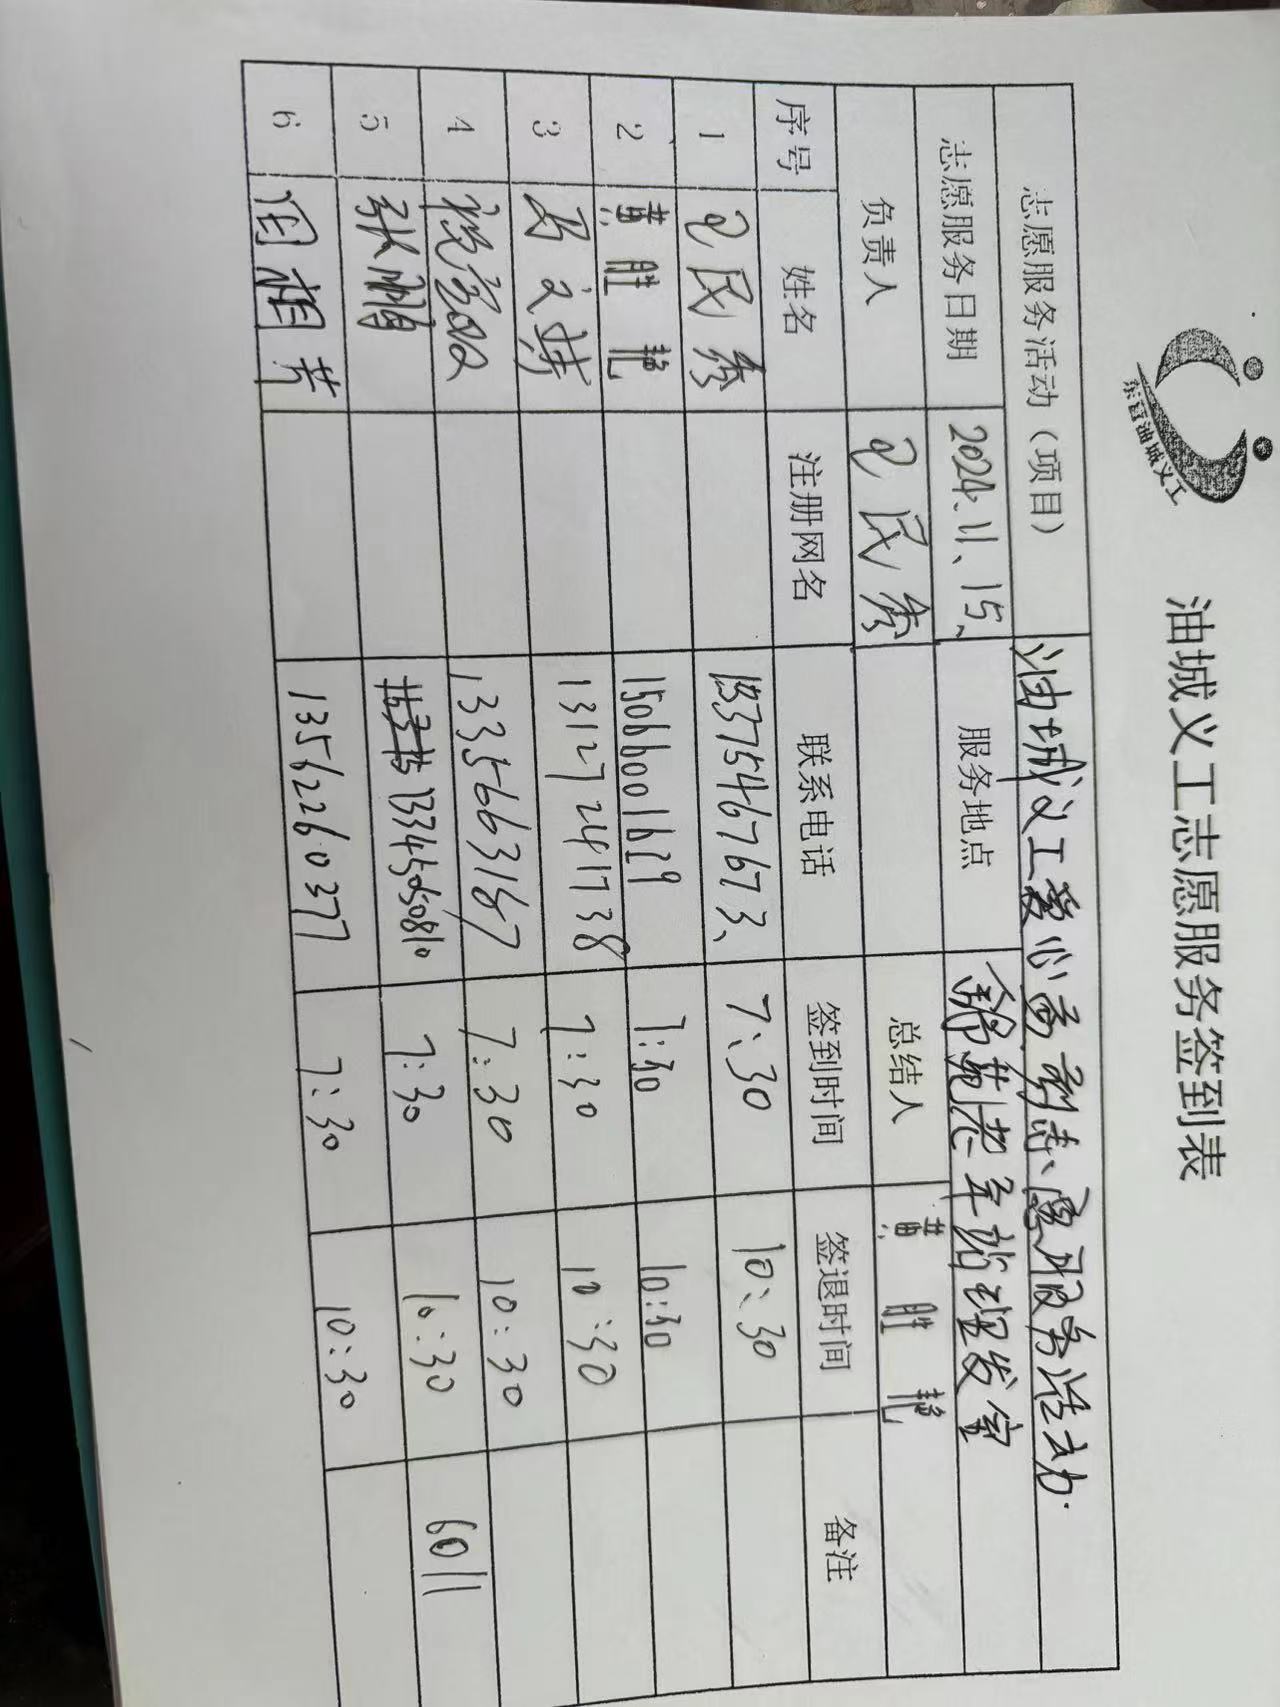 东营油城义工
油城义工志愿服务签到表
志愿服务活动(项目) 油城义工爱心剪发志愿服务活动.
志愿服务日期 2024.11、15、 服务地点 锦苑老年站理发室
负责人 卫民秀 总结人 黄胜艳
序号 姓名 注册网名 联系电话 签到时间 签退时间 备注
1 卫民秀 15375467673、 7:30 10:30
2 黄胜艳 15066001629 7:30 10:30
3 13127241738 7:30 10:30
4 13356663167 7:30 10:30
5 张鹏 13345050810 7:30 10:30 6011
6 13562260377 7:30 10:30